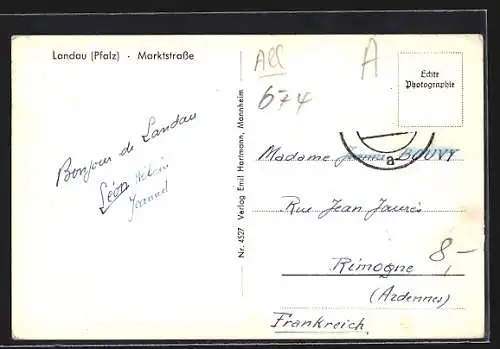 Landau (Pfalz) · Marktstraße
Bonjour de Landau
Léon
Jeannel
Nr. 4527 Verlag Emil Hartmann, Mannheim
All
674
A
Echte
Photographie
a
Madame BOUVY
Rue Jean Jaurès
8,-
Rimogne
(Ardennes)
Frankreich